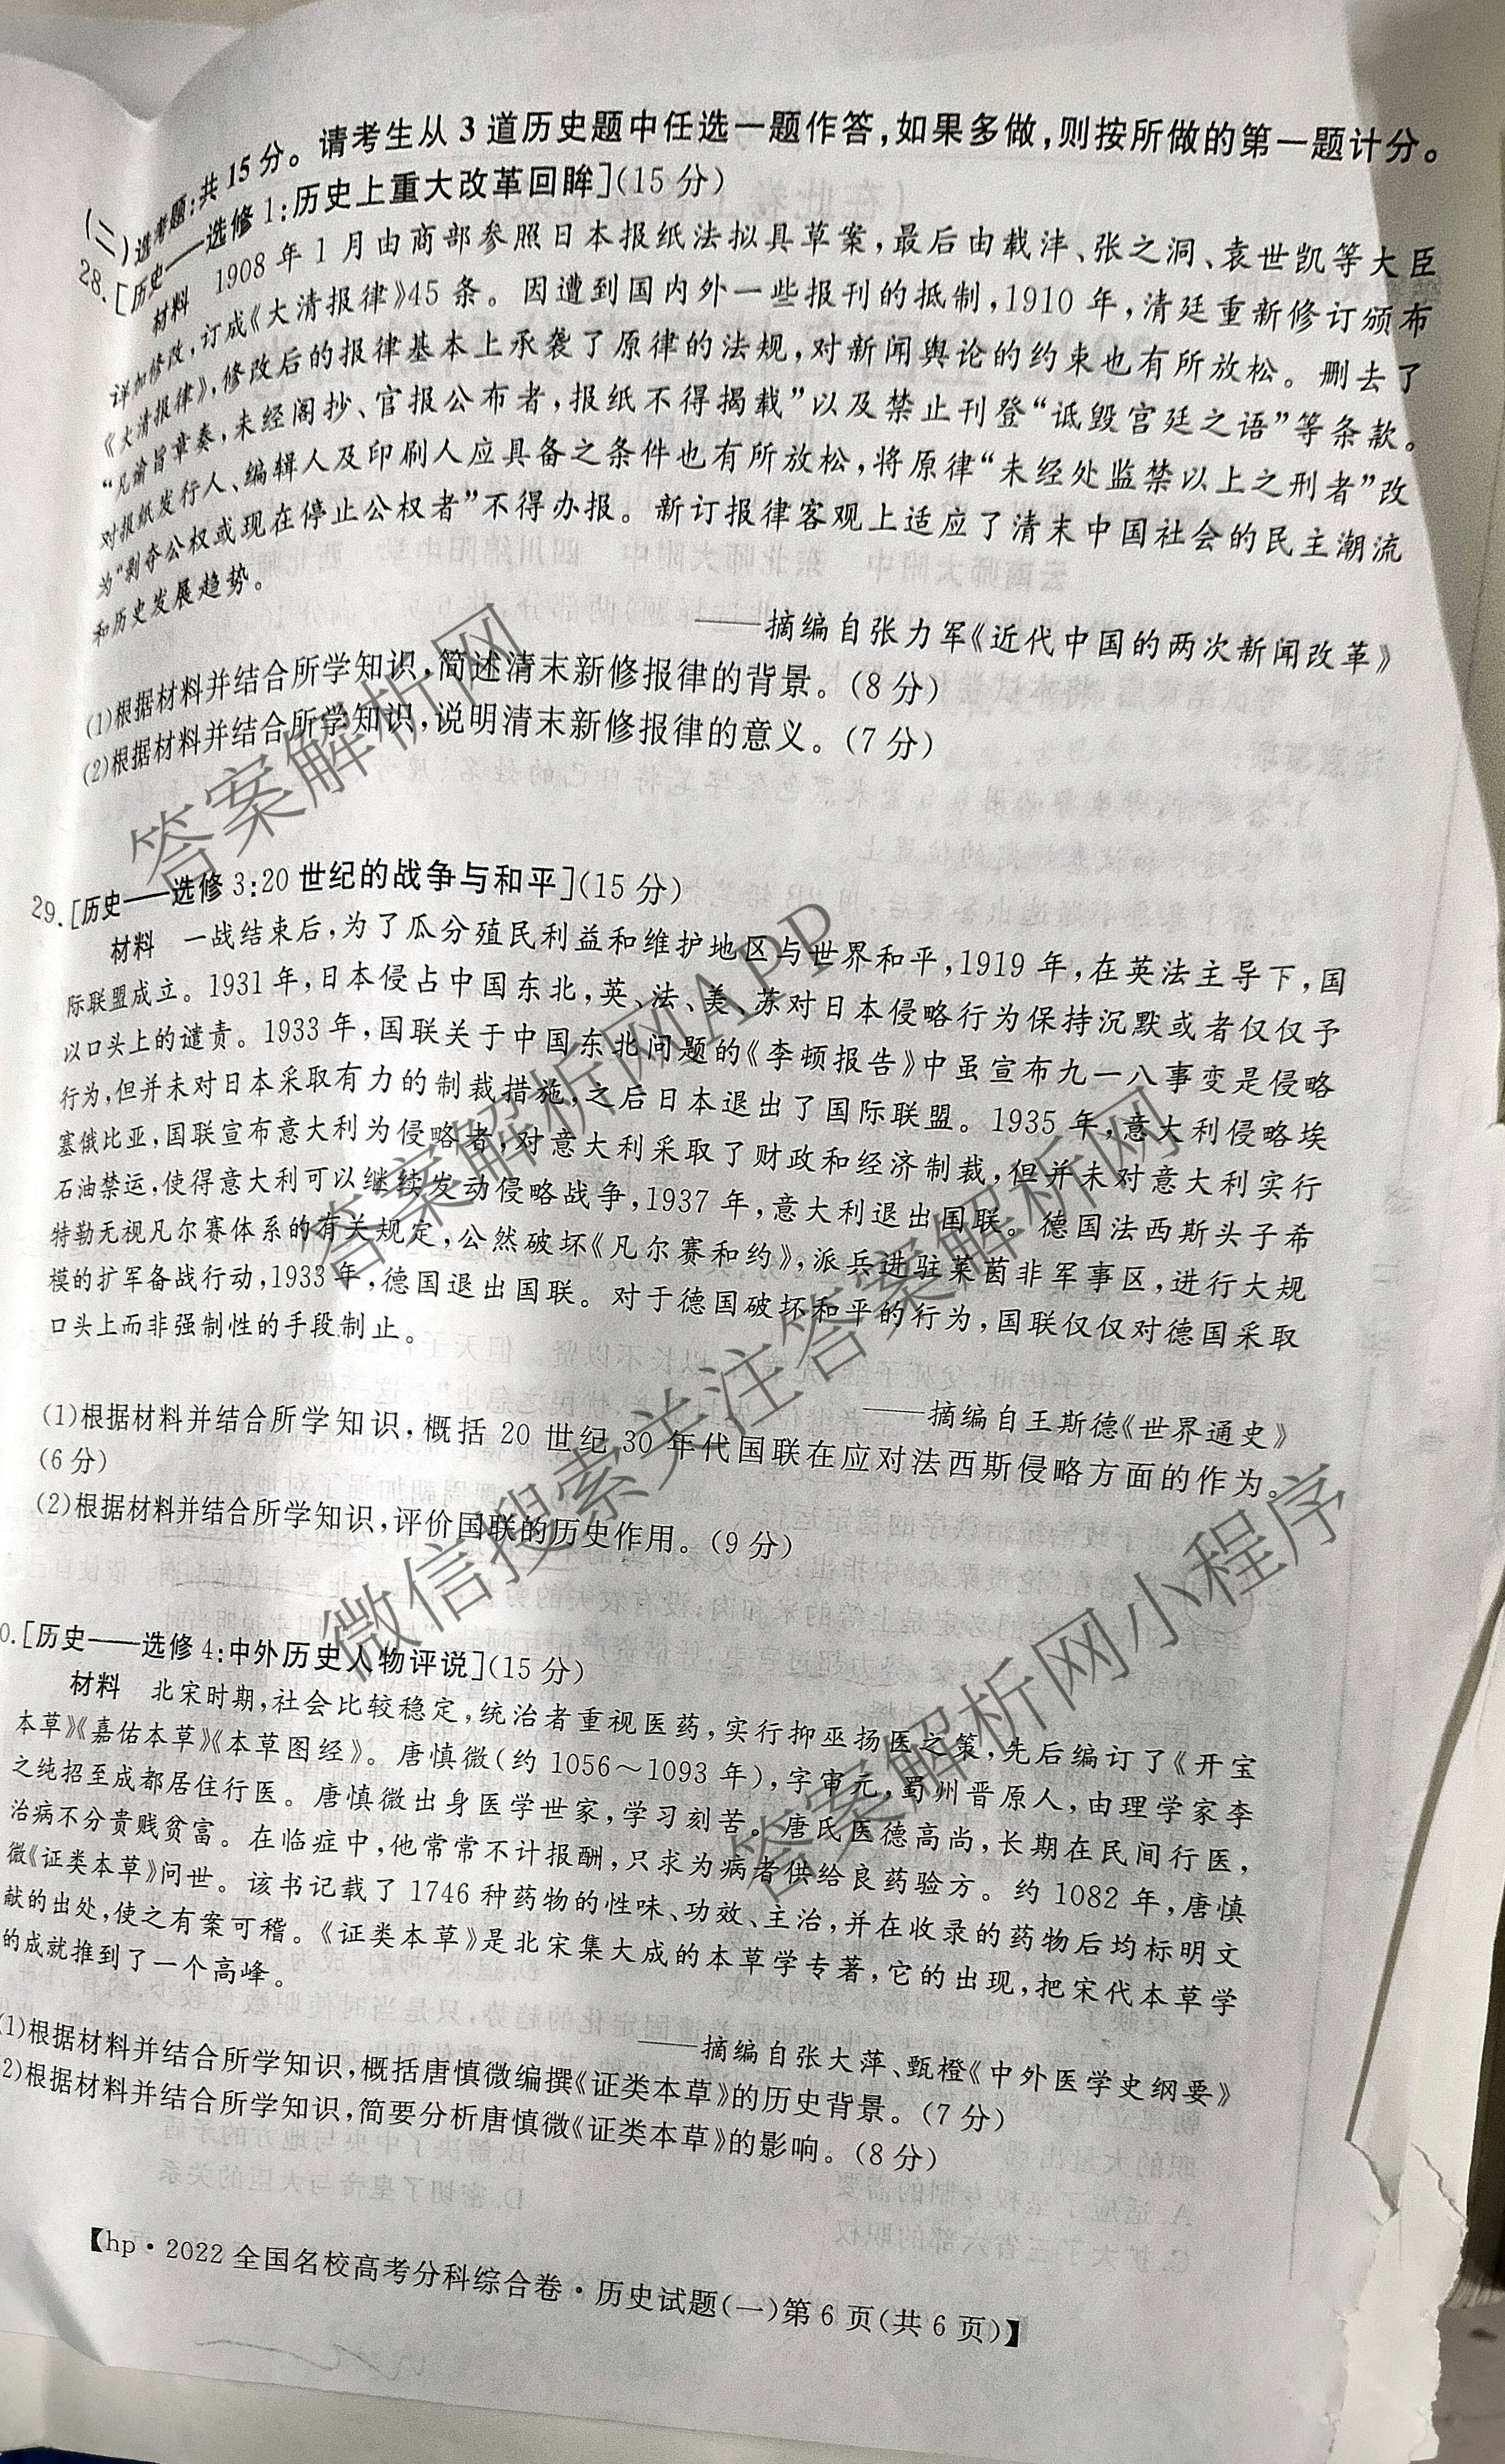 (二)选考题:共15分。请考生从3道历史题中任选一题作答,如果多做,则按所做的第一题计分。
28.[历史——选修1:历史上重大改革回眸](15分)
材料 1908年1月由商部参照日本报纸法拟具草案,最后由载沣、张之洞、袁世凯等大臣
详加修改,订成《大清报律》45条。因遭到国内外一些报刊的抵制,1910年,清廷重新修订颁布
《大清报律》,修改后的报律基本上承袭了原律的法规,对新闻舆论的约束也有所放松。删去了
“凡谕旨章奏,未经阁抄、官报公布者,报纸不得揭载”以及禁止刊登“诋毁宫廷之语”等条款。
对报纸发行人、编辑人及印刷人应具备之条件也有所放松,将原律“未经处监禁以上之刑者”改
为“剥夺公权或现在停止公权者”不得办报。新订报律客观上适应了清末中国社会的民主潮流
和历史发展趋势。
——摘编自张力军《近代中国的两次新闻改革》
(1)根据材料并结合所学知识,简述清末新修报律的背景。(8分)
(2)根据材料并结合所学知识,说明清末新修报律的意义。(7分)
29.[历史——选修3:20世纪的战争与和平](15分)
材料 一战结束后,为了瓜分殖民利益和维护地区与世界和平,1919年,在英法主导下,国
际联盟成立。1931年,日本侵占中国东北,英、法、美、苏对日本侵略行为保持沉默或者仅仅予
以口头上的谴责。1933年,国联关于中国东北问题的《李顿报告》中虽宣布九一八事变是侵略
行为,但并未对日本采取有力的制裁措施,之后日本退出了国际联盟。1935年,意大利侵略埃
塞俄比亚,国联宣布意大利为侵略者,对意大利采取了财政和经济制裁,但并未对意大利实行
石油禁运,使得意大利可以继续发动侵略战争,1937年,意大利退出国联。德国法西斯头子希
特勒无视凡尔赛体系的有关规定,公然破坏《凡尔赛和约》,派兵进驻莱茵非军事区,进行大规
模的扩军备战行动,1933年,德国退出国联。对于德国破坏和平的行为,国联仅仅对德国采取
口头上而非强制性的手段制止。
——摘编自王斯德《世界通史》
(1)根据材料并结合所学知识,概括20世纪30年代国联在应对法西斯侵略方面的作为。
(6分)
(2)根据材料并结合所学知识,评价国联的历史作用。(9分)
0.[历史——选修4:中外历史人物评说](15分)
材料 北宋时期,社会比较稳定,统治者重视医药,实行抑巫扬医之策,先后编订了《开宝
本草》《嘉佑本草》《本草图经》。唐慎微(约1056~1093年),字审元,蜀州晋原人,由理学家李
之纯招至成都居住行医。唐慎微出身医学世家,学习刻苦。唐氏医德高尚,长期在民间行医,
治病不分贵贱贫富。在临症中,他常常不计报酬,只求为病者供给良药验方。约1082年,唐慎
微《证类本草》问世。该书记载了1746种药物的性味、功效、主治,并在收录的药物后均标明文
献的出处,使之有案可稽。《证类本草》是北宋集大成的本草学专著,它的出现,把宋代本草学
的成就推到了一个高峰。
——摘编自张大萍、甄橙《中外医学史纲要》
(1)根据材料并结合所学知识,概括唐慎微编撰《证类本草》的历史背景。(7分)
2)根据材料并结合所学知识,简要分析唐慎微《证类本草》的影响。(8分)
【hp·2022全国名校高考分科综合卷·历史试题(一)第6页(共6页)】
答案解析网
答案解析网APP
微信搜索关注答案解析网
答案解析网小程序